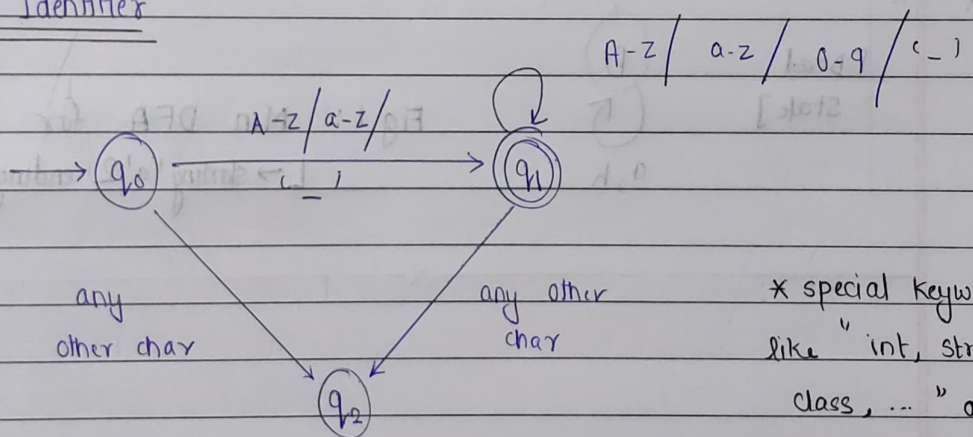 Identifier
A-Z/ a-z/ 0-9/ '_'
A-Z/a-z/
'_'
q0
q1
any other char
any other char
* special keyw
like " int, str
class, ... "
q2